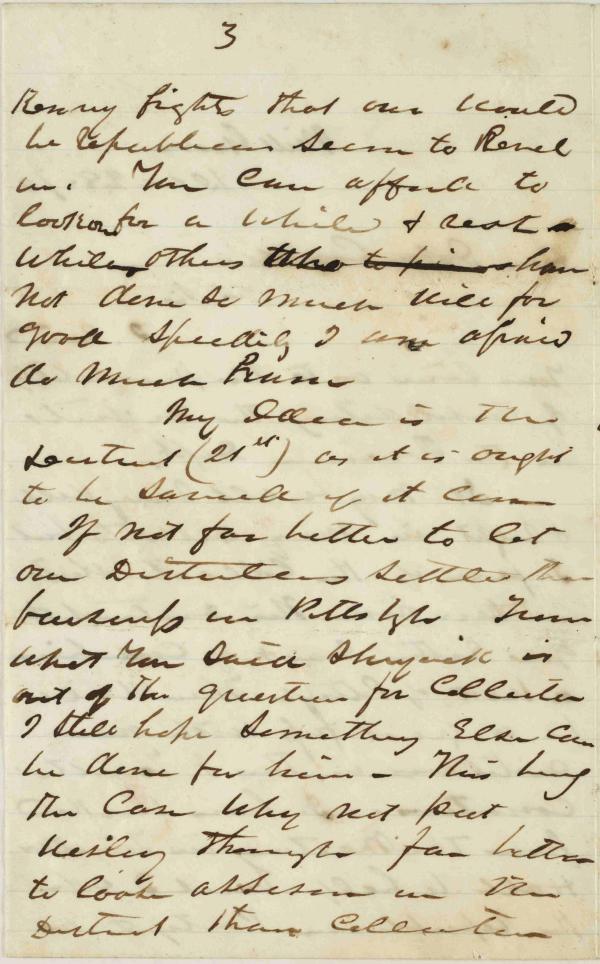 3
Kenny fights that our would
be Republicans seem to Revel
in. You can afford to
look on for a while & rest
while others who have
not done so much will for
good speedily I am afraid
do much harm
My Idea is the
District (21st) as it is ought
to be saved if it can
If not far better to let
our Distillers settle their
business in Pittsbgh From
what You said Shryock is
out of the question for Collector
I still hope something Else can
be done for him - This being
the Case Why not put
Wesley through far better
to loose assessor in the
District than Collector